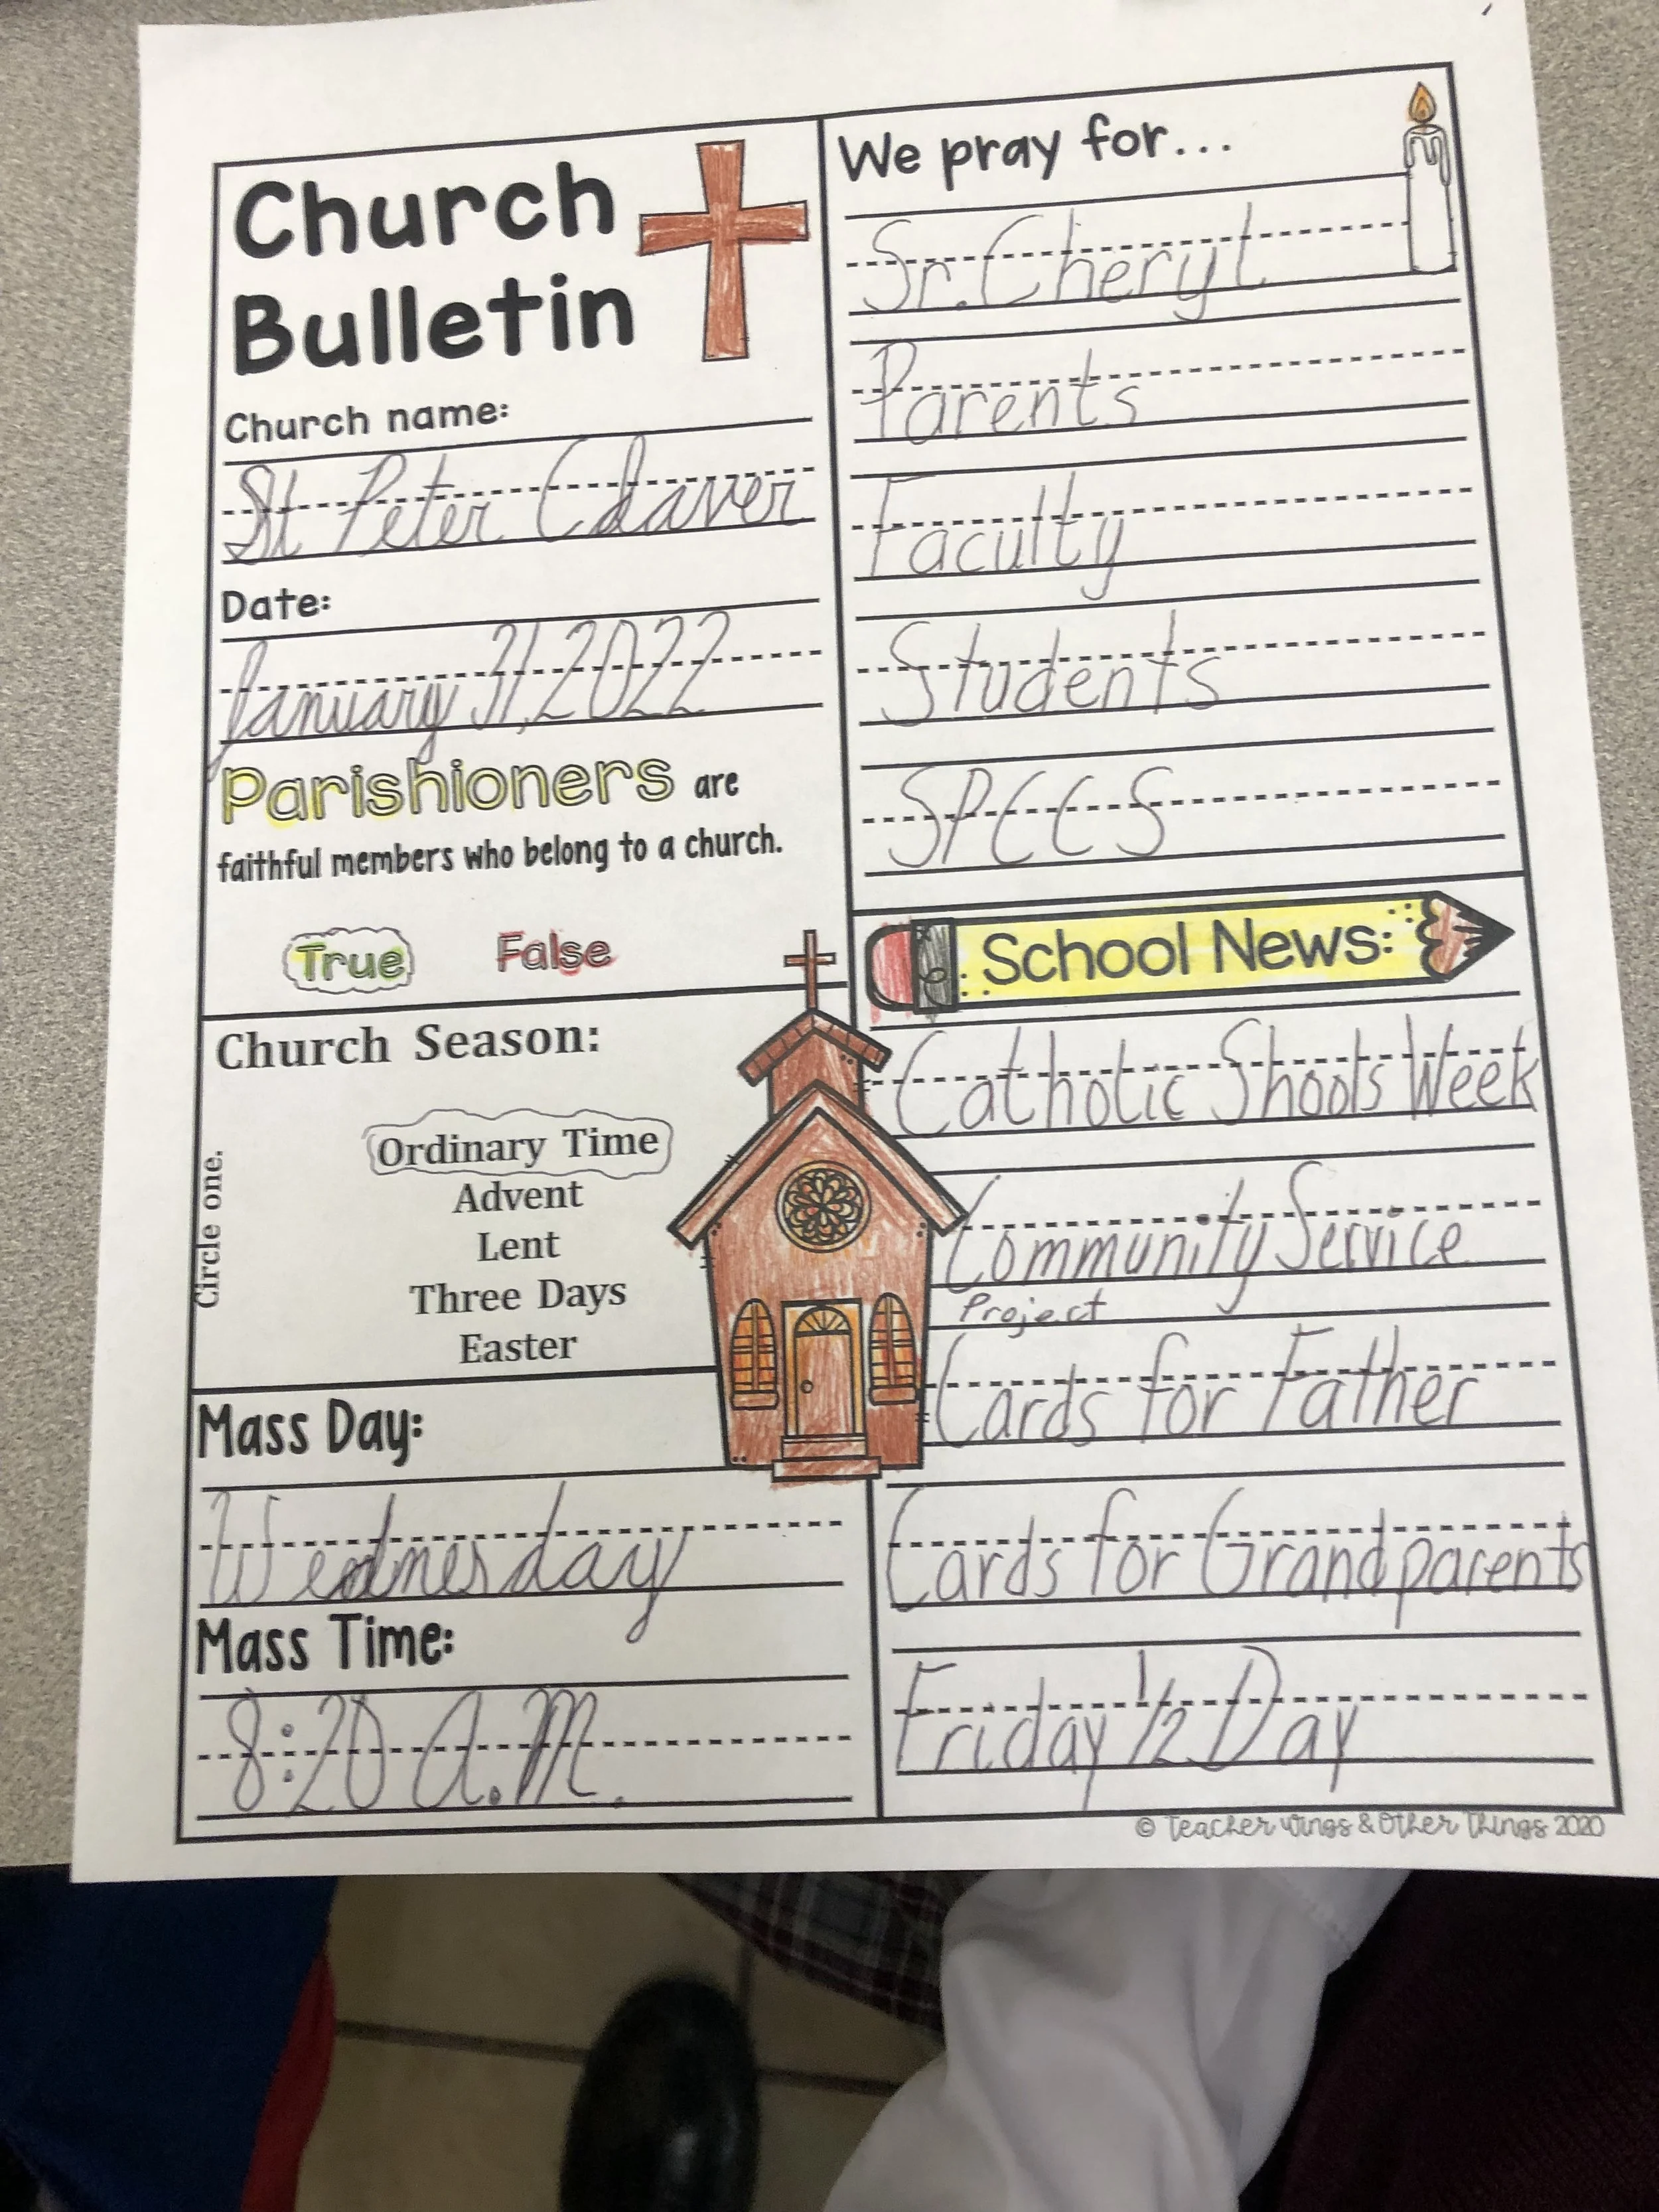 Church
Bulletin
Church name:
St Peter Claver
Date:
January 31, 2022
Parishioners are
faithful members who belong to a church.
True False
Church Season:
Circle one.
Ordinary Time
Advent
Lent
Three Days
Easter
Mass Day:
Wednesday
Mass Time:
8:20 A.M.
We pray for...
Sr. Cheryl
Parents
Faculty
Students
SPCCS
School News:
Catholic Shools Week
Community Service
Project
Cards for Father
Cards for Grandparents
Friday 1/2 Day
© Teacher Wings & Other Things 2020